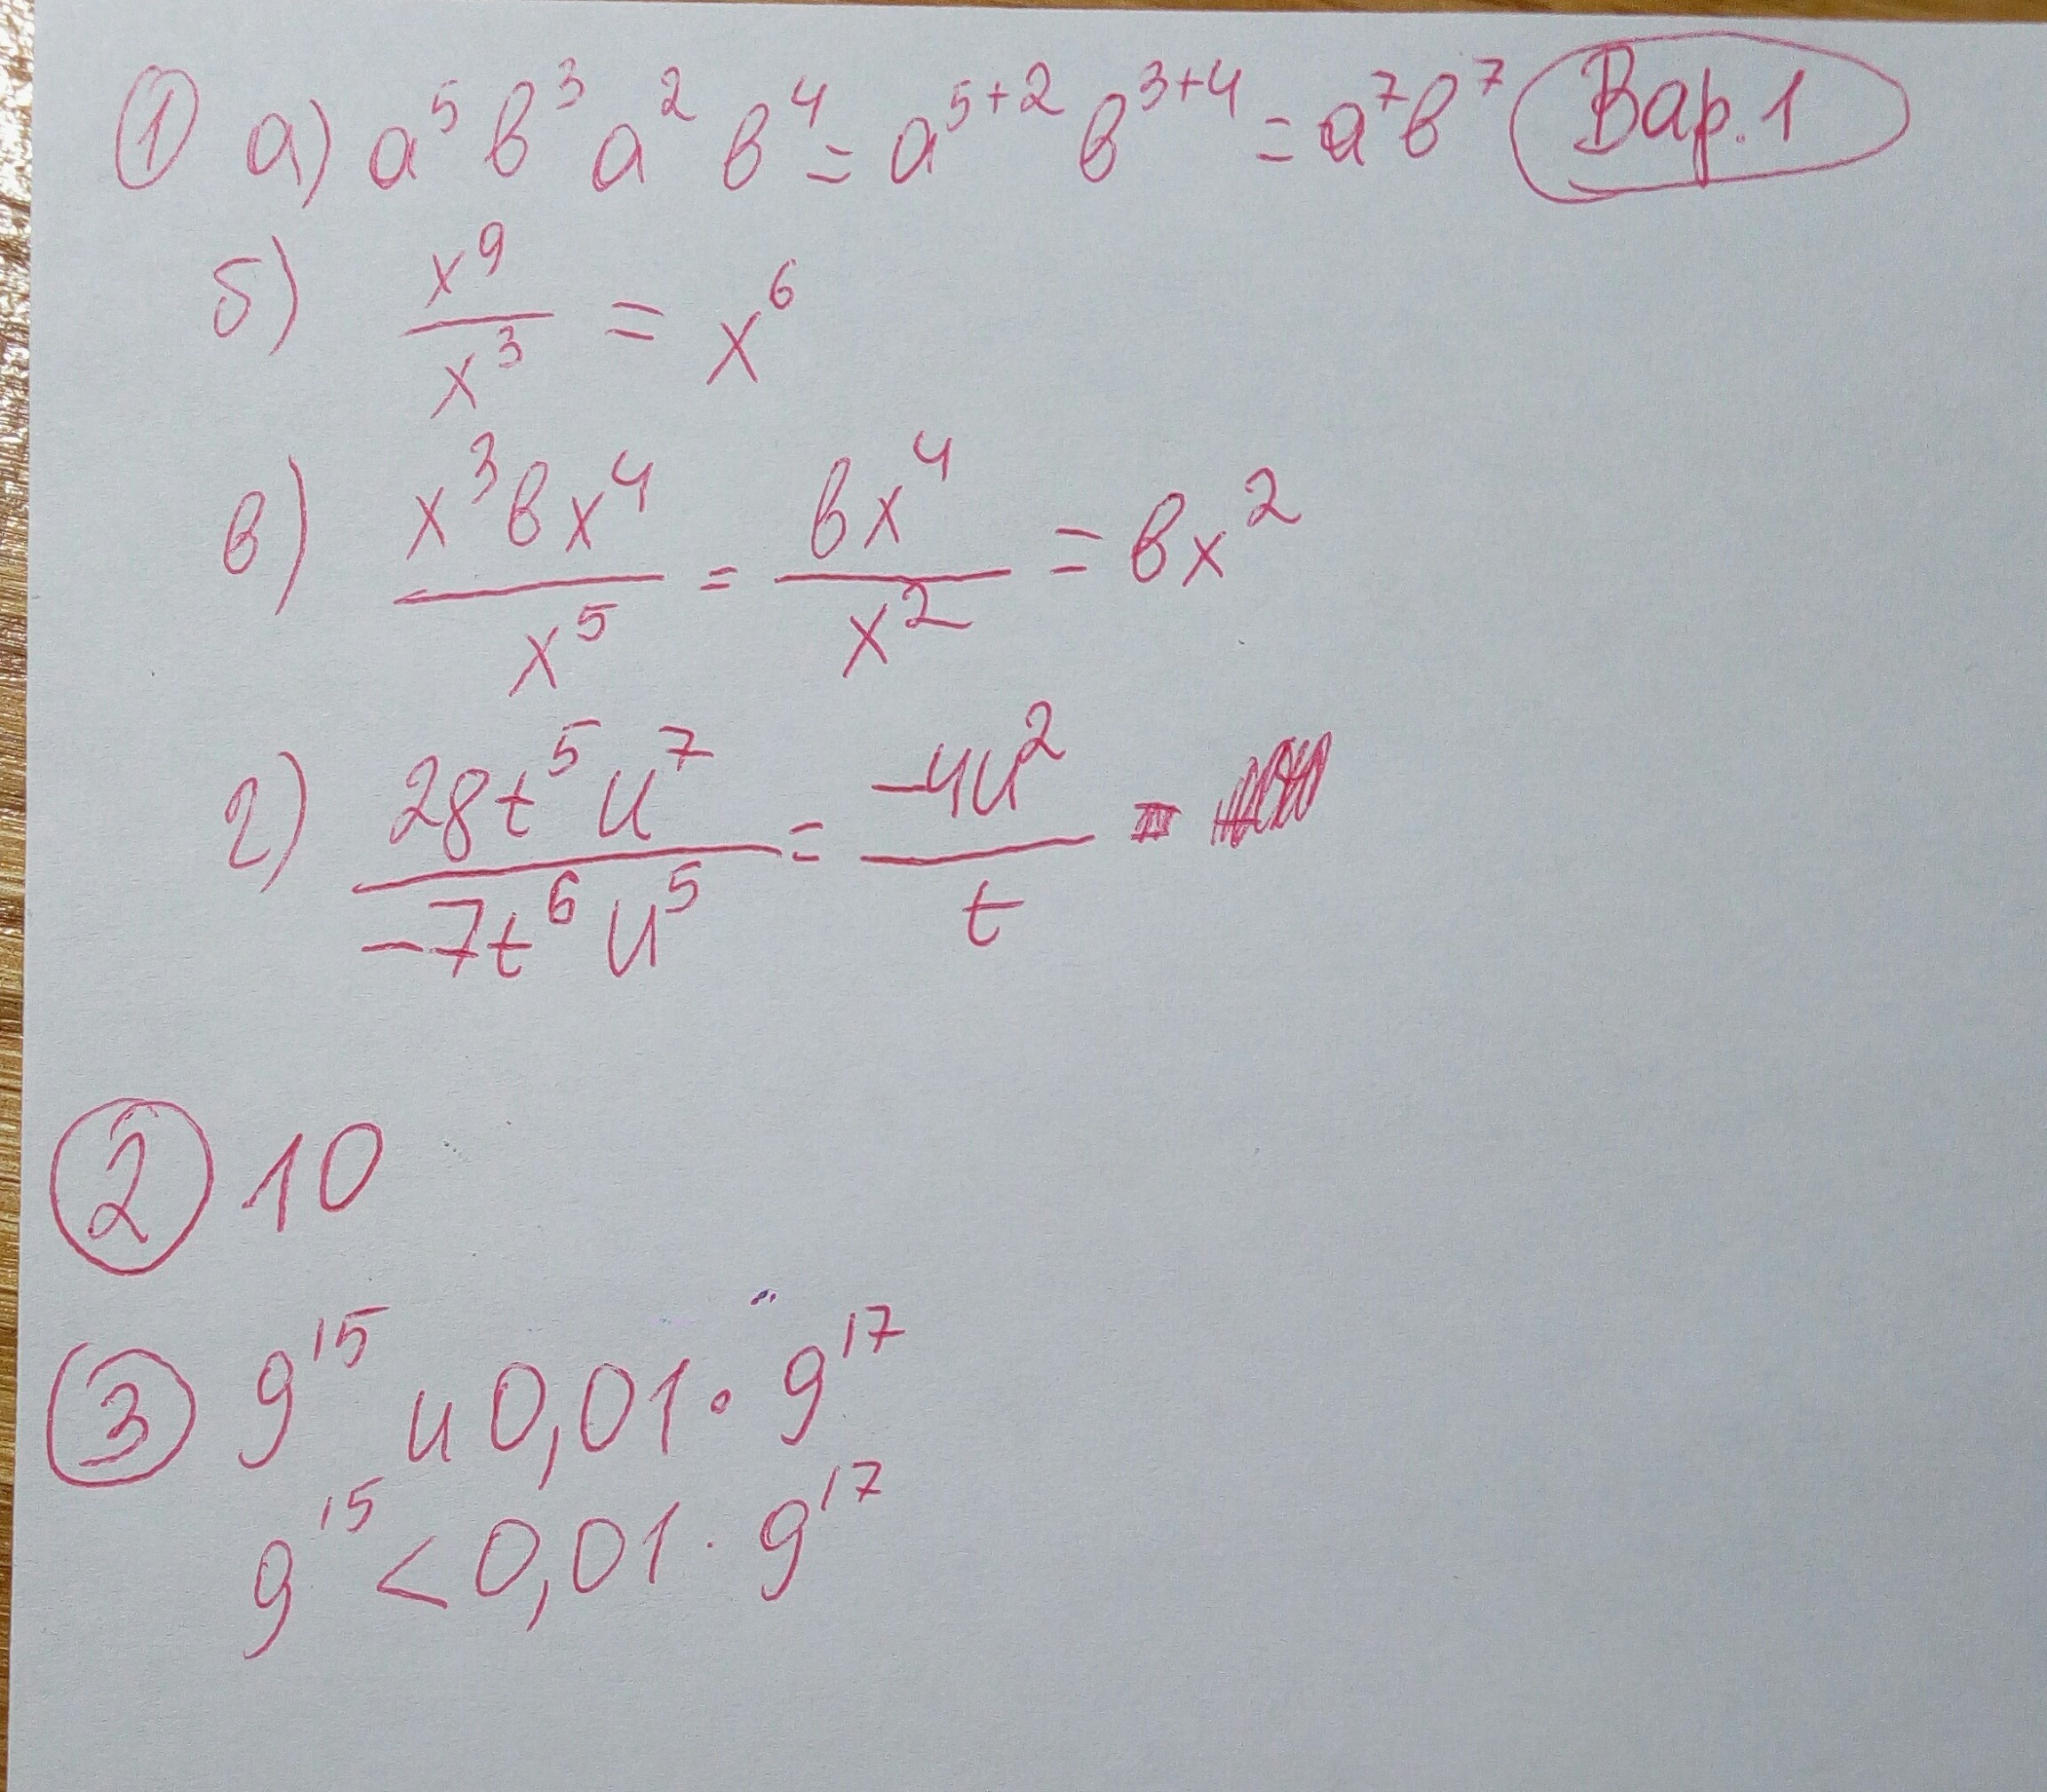 ① а) a⁵b³a²b⁴ = a⁵⁺²b³⁺⁴ = a⁷b⁷ Вар. 1
б) x⁹/x³ = x⁶
в) x³bx⁴/x⁵ = bx⁴/x² = bx²
г) 28t⁵u⁷/-7t⁶u⁵ = -4u²/t
② 10
③ 9¹⁵ и 0,01 · 9¹⁷
9¹⁵ < 0,01 · 9¹⁷